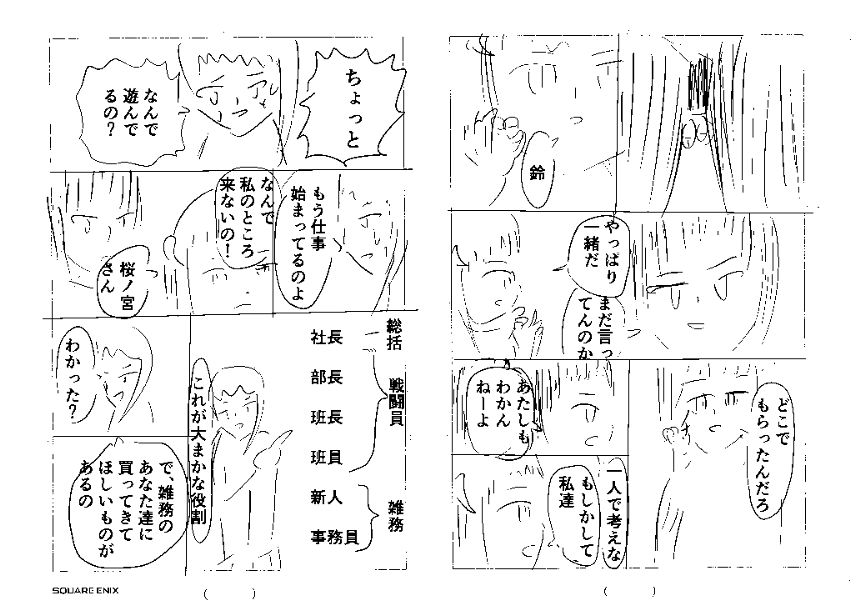 鈴
やっぱり
一緒だ
まだ言っ
てんのか
どこで
もらったんだろ
あたしも
わかん
ねーよ
一人で考えな
もしかして
私達
ちょっと
なんで
遊んで
るの?
もう仕事
始まってるのよ
なんで
私のところ
来ないの!
桜ノ宮
さん
総括
社長
戦闘員
部長
班長
班員
雑務
新人
事務員
これが大まかな役割
わかった?
で、雑務の
あなた達に
買ってきて
ほしいものが
あるの
SQUARE ENIX
( )
( )